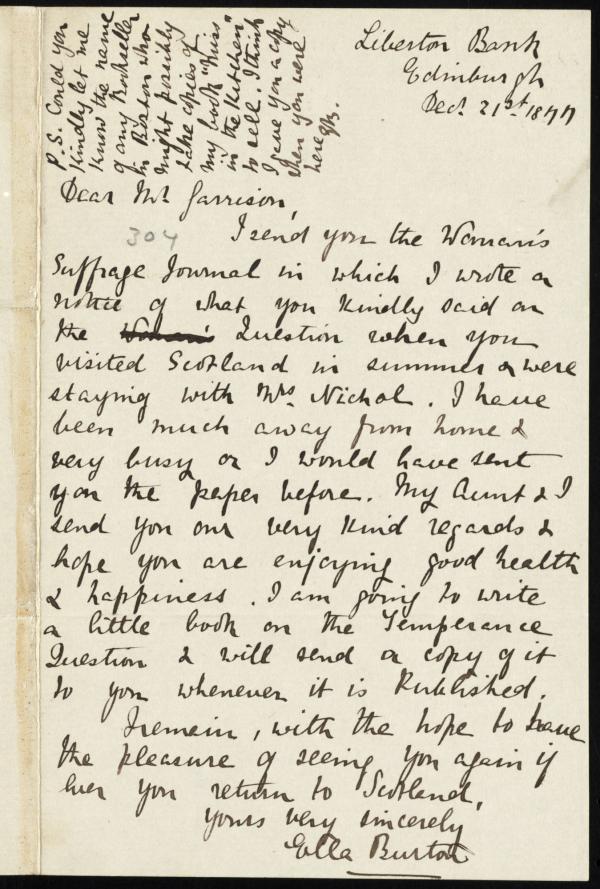 Liberton Bank
Edinburgh
Decr 21st 1877
Dear Mr Garrison,
304
I send you the Woman's
Suffrage Journal in which I wrote a
notice of what you kindly said on
the Woman's Question when you
visited Scotland in summer & were
staying with Mrs Nichol. I have
been much away from home &
very busy or I would have sent
you the paper before. My Aunt & I
send you our very kind regards &
hope you are enjoying good health
& happiness. I am going to write
a little book on the Temperance
Question & will send a copy of it
to you whenever it is Published.
I remain, with the hope to have
the pleasure of seeing you again if
ever you return to Scotland,
Yours very sincerely
Ella Burton
P.S. Could you
kindly let me
know the name
of any Bookseller
in Boston who
might possibly
take copies of
my book "Miss
in the Kitchen"
to sell. I think
I gave you a copy
when you were
here